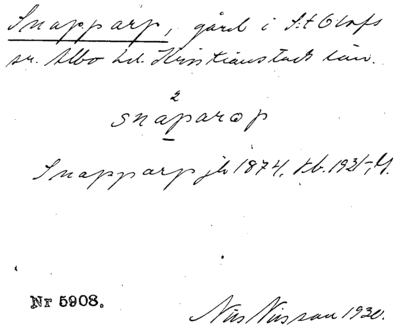 Snapparp, gård i S:t Olofs
sn. Albo hd. Kristianstads län.
2
snaparəp
Snapparp jb 1874, kb. 1931
Nr 5908.
Nils Nilsson 1930.